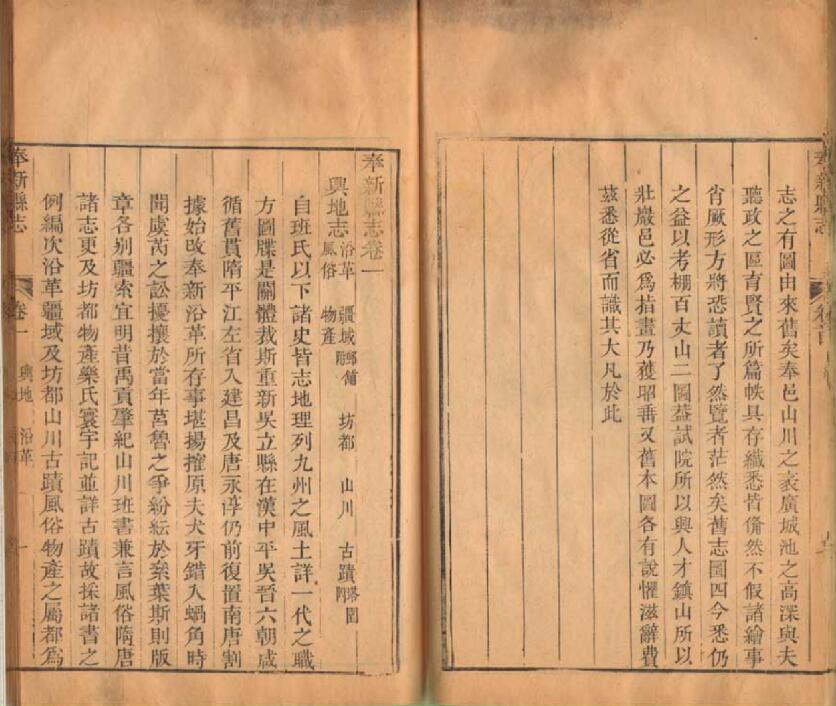 志之有圖由來舊矣奉邑山川之袤廣城池之高深與夫
聽政之區育賢之所篇帙具存纖悉皆偹然不假諸繪事
肖厥形方將恐讀者了然覽者茫然矣舊志圖四今悉仍
之益以考棚百丈山二圖葢試院所以興人才鎮山所以
壯巖邑必為指畫乃獲昭垂又舊本圖各有說懼滋辭費
茲悉從省而識其大凡於此
奉新縣志卷一
輿地志 沿革 疆域 鄉鋪附 坊都 山川 古蹟 塔園附
風俗 物產
自班氏以下諸史皆志地理列九州之風土詳一代之職
方圖牒是關體裁斯重新吳立縣在漢中平吳晉六朝咸
循舊貫隋平江左省入建昌及唐永淳仍前復置南唐割
據始改奉新沿革所存事堪揚搉原夫犬牙錯入蝸角時
聞虞芮之訟擾攘於當年莒魯之爭紛紜於奕葉斯則版
章各別疆索宜明昔禹貢肇紀山川班書兼言風俗隋唐
諸志更及坊都物產樂氏寰宇記並詳古蹟故採諸書之
例編次沿革疆域及坊都山川古蹟風俗物產之屬都為
奉新縣志 卷一 輿地 沿革 一